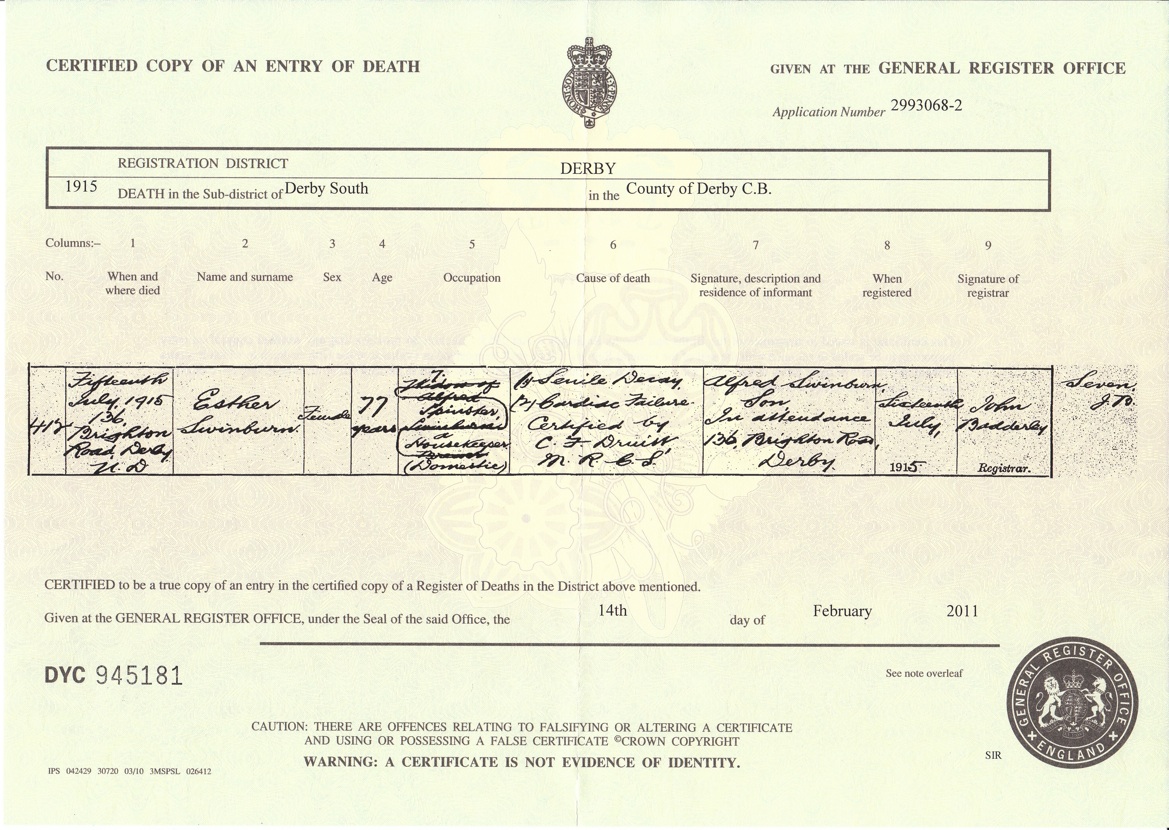 CERTIFIED COPY OF AN ENTRY OF DEATH
GIVEN AT THE GENERAL REGISTER OFFICE
Application Number 2993068-2
REGISTRATION DISTRICT
DERBY
1915 DEATH in the Sub-district of Derby South in the County of Derby C.B.
Columns:– 1 2 3 4 5 6 7 8 9
No. When and where died Name and surname Sex Age Occupation Cause of death Signature, description and residence of informant When registered Signature of registrar
412
Fifteenth
July, 1915
136,
Brighton
Road, Derby
U.D
Esther
Swinburn.
Female
77
years
7.
Widow of
Alfred
Spinster,
a
Housekeeper
(Domestic)
(1) Senile Decay
(2) Cardiac Failure
Certified by
C. F Druitt
M.R.C.S.
Alfred Swinburn,
Son
In attendance
136, Brighton Road,
Derby.
Sixteenth
July,
1915
John
Badderly
Registrar.
Seven.
CERTIFIED to be a true copy of an entry in the certified copy of a Register of Deaths in the District above mentioned.
Given at the GENERAL REGISTER OFFICE, under the Seal of the said Office, the 14th day of February 2011
DYC 945181
See note overleaf
CAUTION: THERE ARE OFFENCES RELATING TO FALSIFYING OR ALTERING A CERTIFICATE
AND USING OR POSSESSING A FALSE CERTIFICATE ©CROWN COPYRIGHT
WARNING: A CERTIFICATE IS NOT EVIDENCE OF IDENTITY.
IPS 042429 30720 03/10 3MSPSL 026412
SIR
GENERAL REGISTER OFFICE
ENGLAND